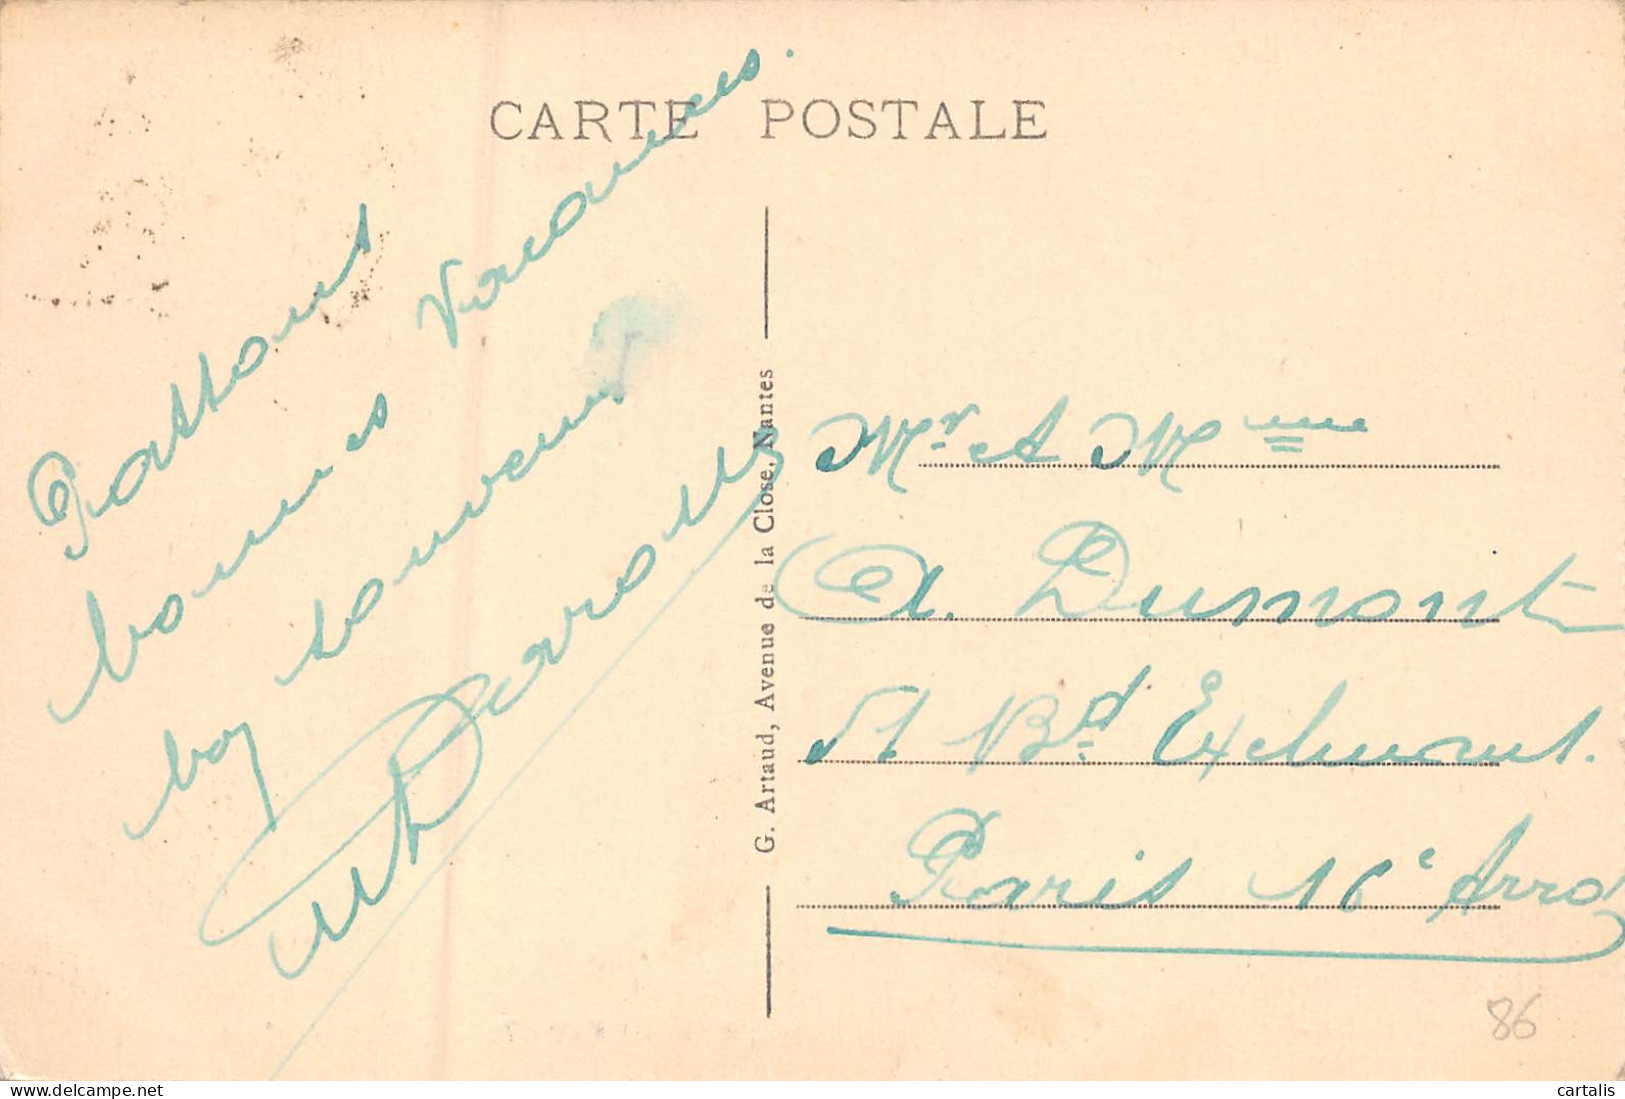 CARTE POSTALE
Passons
bonnes Vacances.
bon souvenir
G. Artaud, Avenue de la Close, Nantes
Mr et Mme
A. Dumont
51 Bd. Exelmans.
Paris 16e Arro
86
cartalis